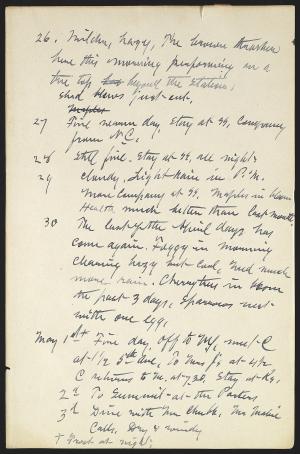 26. Milder, hazy, The brown thrasher
here this morning performing in a
tree top beyond the station,
shad blows just out.
Maples
27 Fine warm day, stay at SS, Company
from N.C.
28 Still fine. Stay at SS, all night
29 cloudy, Light Rain in P.M.
More company at SS. Maples in bloom
Health much better than last month.
30 The last of the April days has
come again. Foggy in morning
clearing hazy but cool, need much
more rain. Cherry trees in bloom
the past 3 days, Sparrows nest
with one egg.
May 1st Fine day, off to N.Y, meet C
at 5th Ave,
C returns to at 7.30, Stay at
2d To Summit at the
3d Drive with Mr
Calls. Dry & windy
Frost at night.